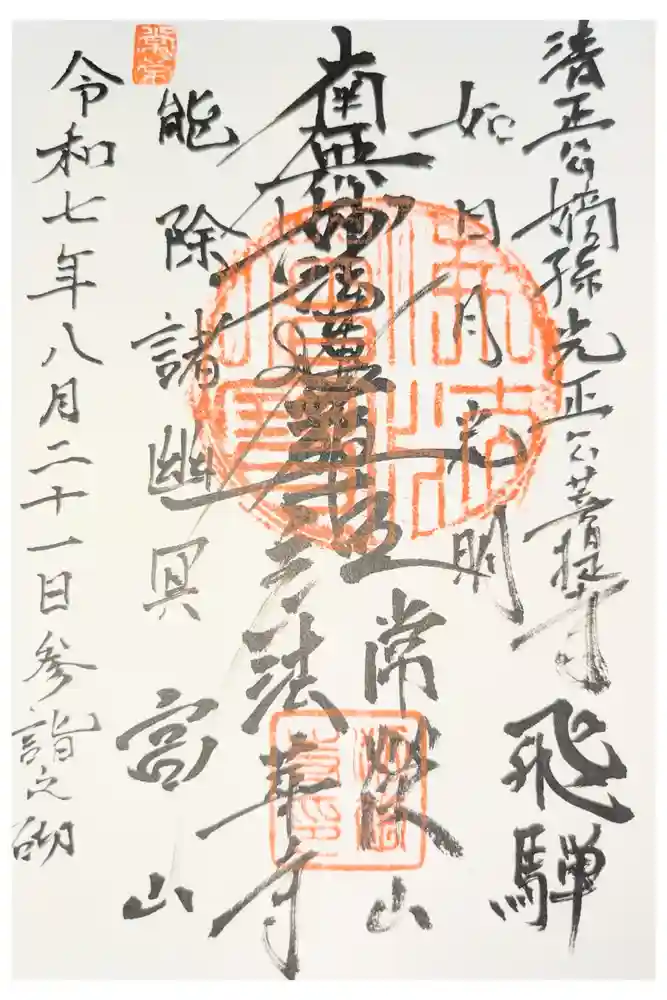 清正公嫡孫光正公菩提寺
飛騨
如日月光明
常
山
南無妙法蓮華経
法華寺
能除諸幽冥
高山
令和七年八月二十一日参詣之砌